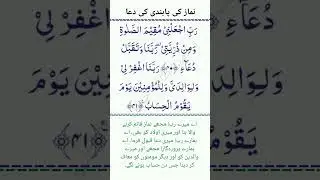 نماز کی پابندی کی دعا
رَبِّ اجْعَلْنِیْ مُقِیْمَ الصَّلٰوةِ
وَمِنْ ذُرِّیَّتِیْ ۖ رَبَّنَا وَتَقَبَّلْ
دُعَآءِ ﴿۴۰﴾ رَبَّنَا اغْفِرْ لِیْ
وَلِوَالِدَیَّ وَلِلْمُؤْمِنِیْنَ یَوْمَ
یَقُوْمُ الْحِسَابُ ﴿۴۱﴾
اے میرے رب! مجھے نماز قائم کرنے
والا بنا اور میری اولاد کو بھی، اے
ہمارے رب! میری دعا قبول فرما۔ اے
ہمارے پروردگار! مجھے اور میرے
والدین کو اور دیگر مومنوں کو معاف
کر دینا جس دن حساب ہونے لگے۔